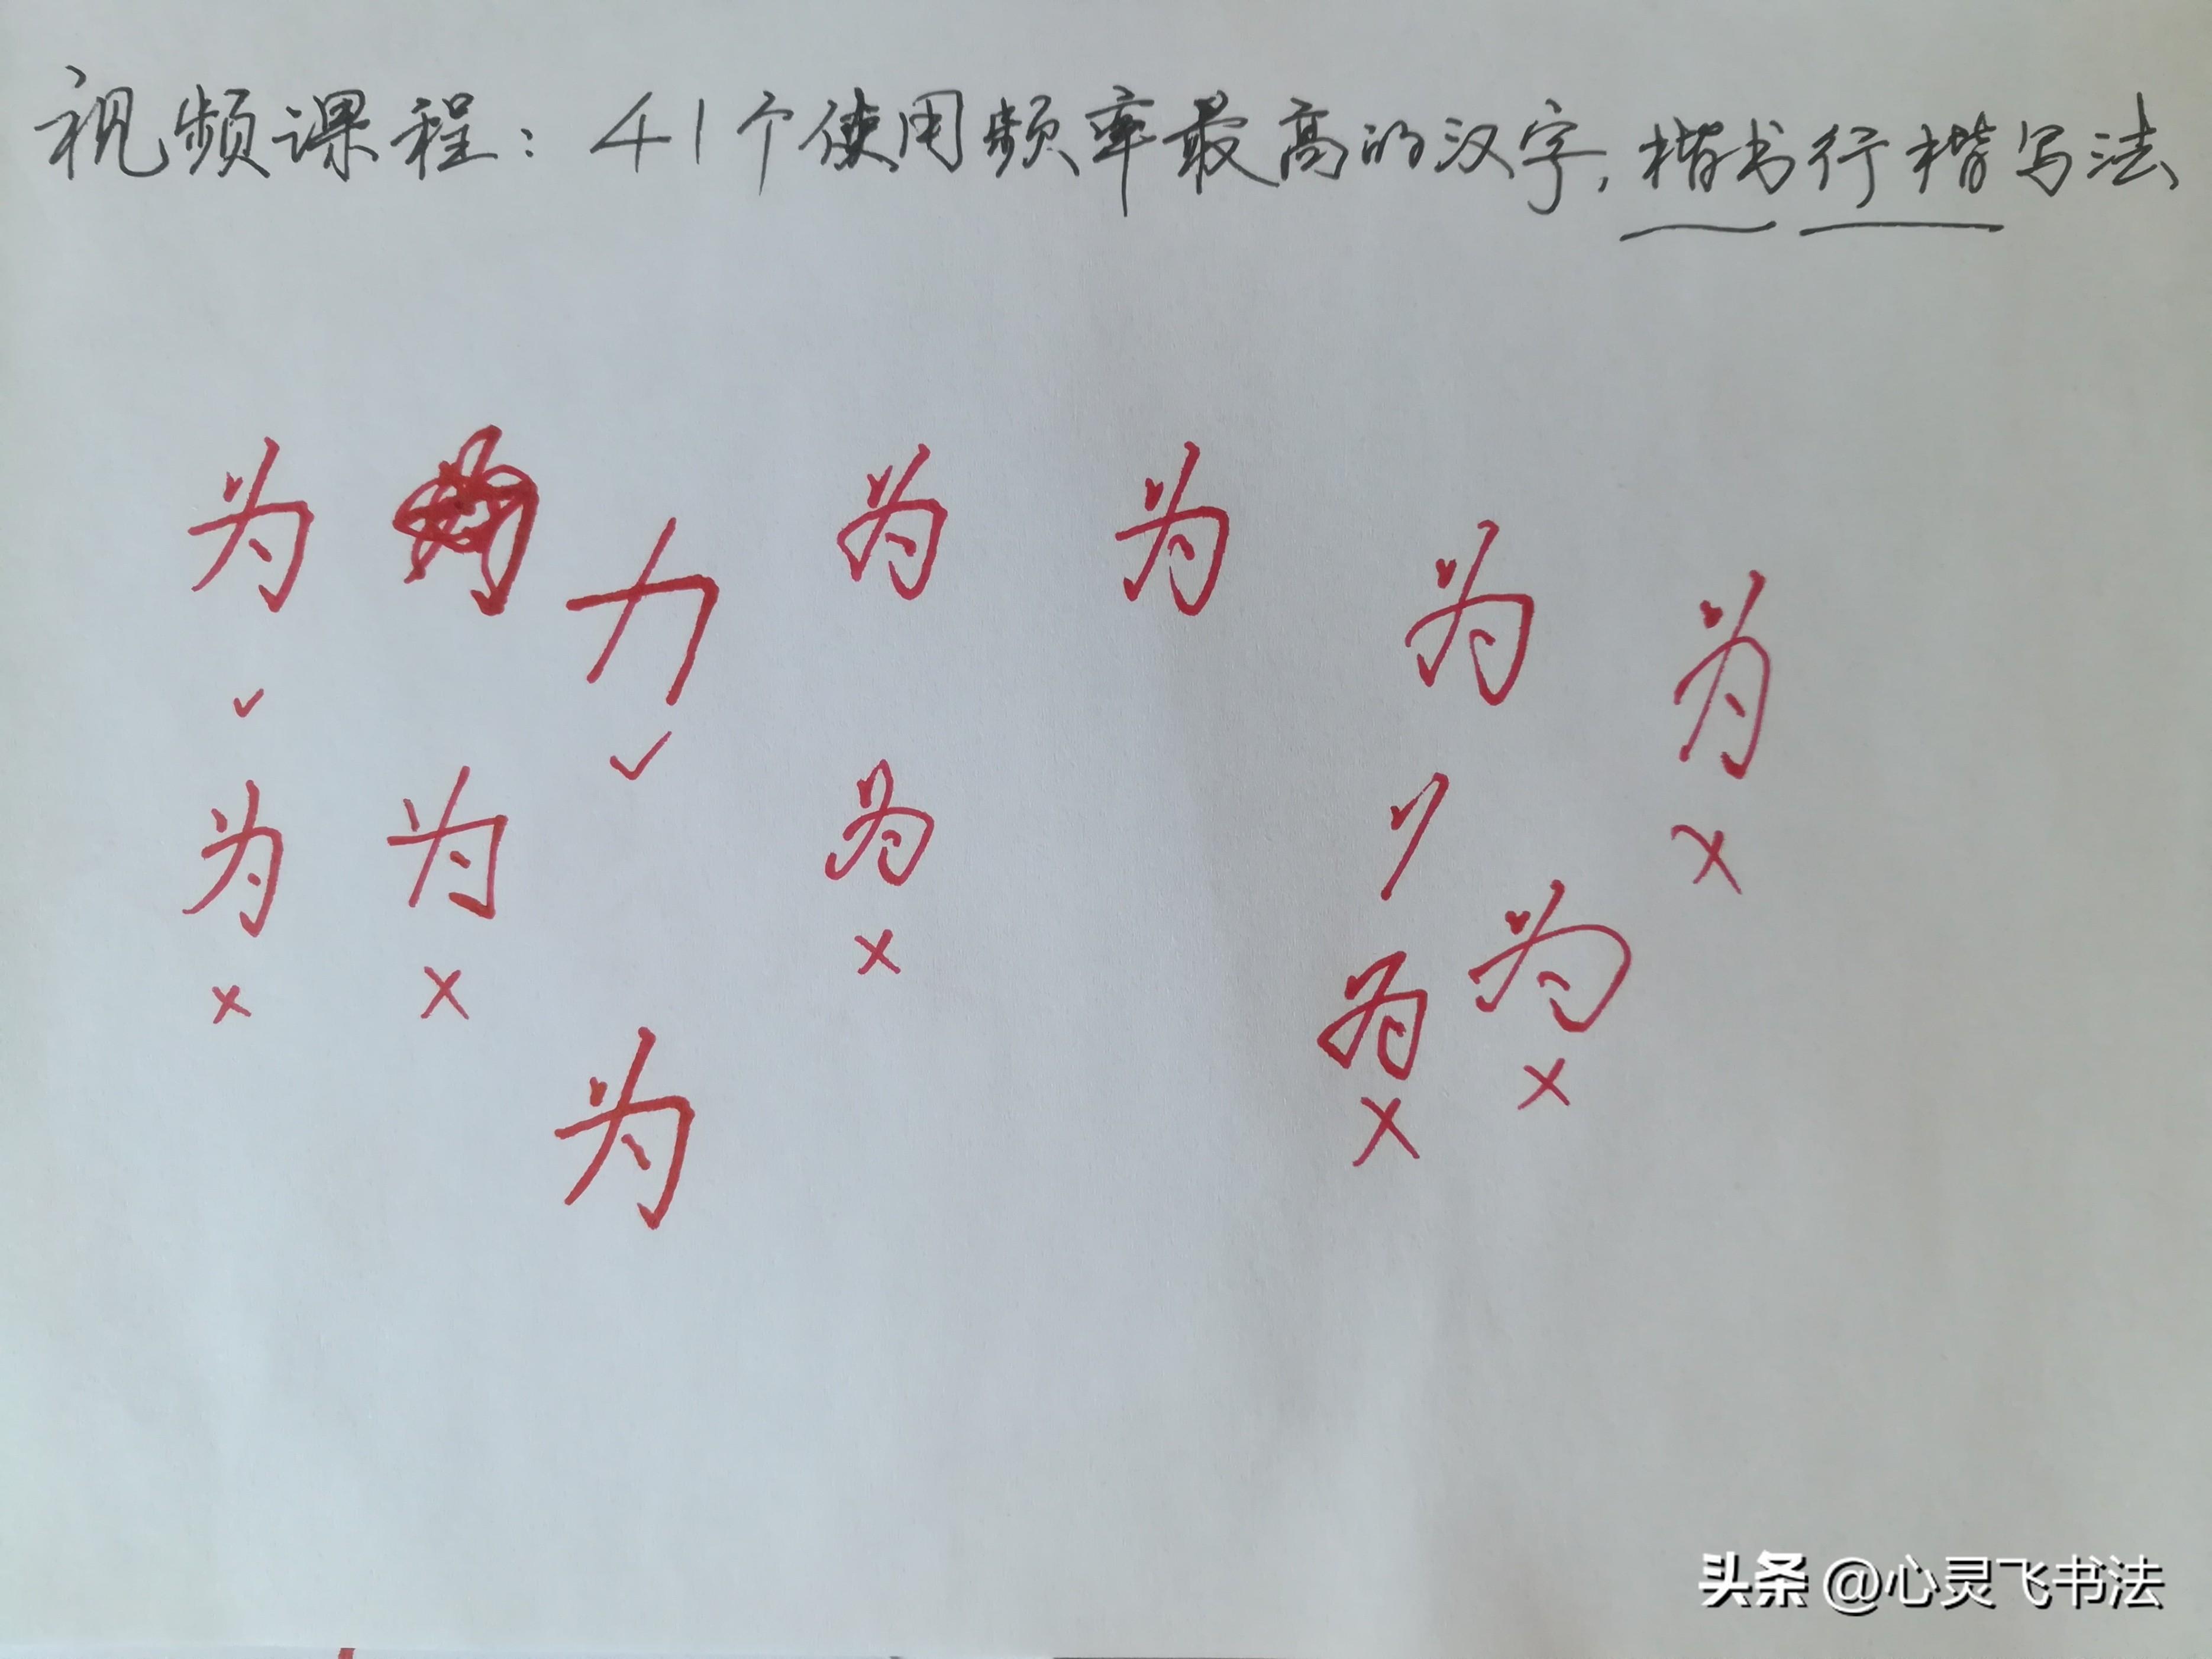 视频课程：41个使用频率最高的汉字，楷书行楷写法
为 力 为 为 为 为
为 为 为 为 为
为
头条 @心灵飞书法